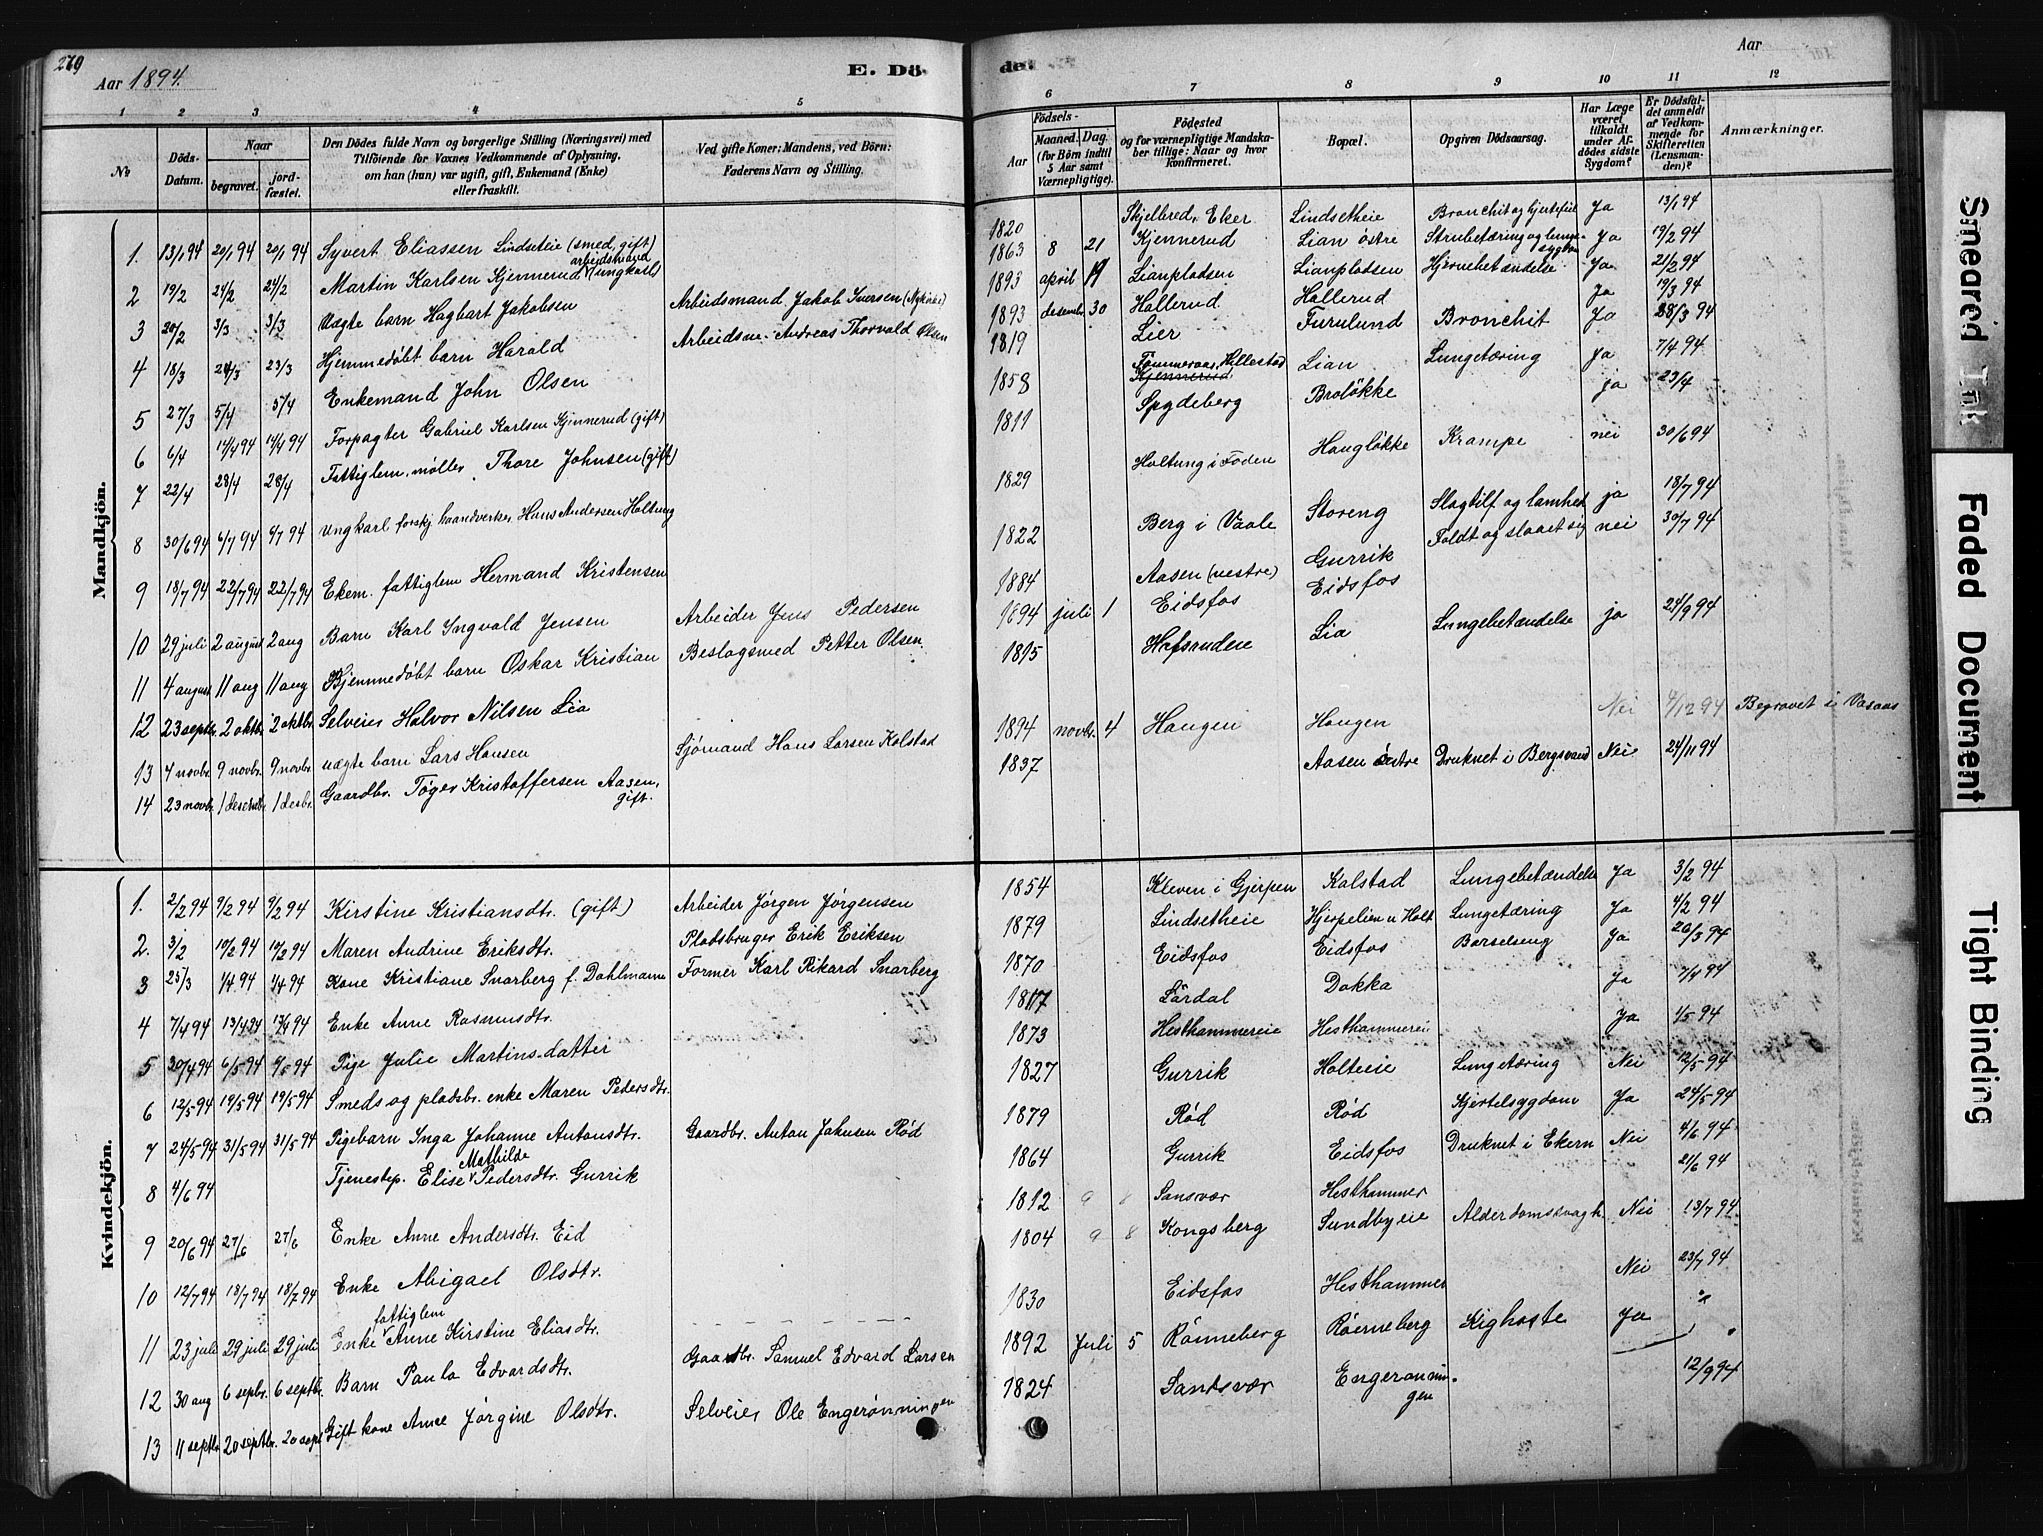 279
Aar 1894.
E. Dö-
de.
Aar
1 2 3 4 5 6 7 8 9 10 11 12
No
Döds-Datum.
Naar
begravet.
jord-fæstet.
Den Dödes fulde Navn og borgerlige Stilling (Næringsvei) med
Tilföiende for Voxnes Vedkommende af Oplysning,
om han (hun) var ugift, gift, Enkemand (Enke)
eller fraskilt.
Ved gifte Koner: Mandens, ved Börn:
Faderens Navn og Stilling.
Födsels-
Aar
Maaned. Dag.
(for Börn indtil
5 Aar samt
Værnepligtige).
Födested
og for værnepligtige Mandska-
ber tillige: Naar og hvor
konfirmeret.
Bopæl.
Opgiven Dödsaarsag.
Har Læge
været
tilkaldt
under Af-
dödes sidste
Sygdom?
Er Dödsfal-
det anmeldt
af Vedkom-
mende for
Skifteretten
(Lensman-
den)?
Anmærkninger.
Mandkjön.
1. 13/1 94 20/1 94 20/1 94 Syvert Eliassen Lindseteie (smed, gift) 1820 Skjelbred, Eker Lindsetheie Bronchit og hjertefeil Ja 13/1 94
2 19/2 24/2 24/2 Martin Karlsen Kjennerud arbeidsmand (ungkarl) 1863 8 21 Kjennerud Lian østre Strubetæring og lungesygdom Ja 19/2 94
3 20/2 3/3 3/3 Uægte barn Hagbart Jakobsen Arbeidsmand Jakob Iversen (Nykirke) 1893 april 19 Lianpladsen Lianpladsen Hjernebetændelse Ja 21/2 94
4 18/3 24/3 23/3 Hjemmedøbt barn Harald Arbeidsm. Andreas Thorvald Olsen 1893 desembr 30 Hallerud Hallerud Ja 19/3 94
5 27/3 5/4 5/4 Enkemand John Olsen 1819 Lier Furulund Bronchit Ja 28/3 94
6 6/4 14/4 94 14/4 94 Forpagter Gabriel Karlsen Kjennerud (gift) 1858 Tømmeraas, Hillestad Kjennerud Lian Lungetæring Ja 7/4 94
7 22/4 28/4 28/4 Fattiglem, møller Thore Johnsen (gift) 1811 Spydeberg Broløkke ja 23/4
8 30/6 94 6/7 94 6/7 94 Ungkarl forskj. haandverker Hans Andersen Holtung 1829 Holtung i Foden Haugløkke Krampe nei 30/6 94
9 18/7 94 22/7 94 22/7 94 Ekem. fattiglem Hermand Kristensen 1822 Berg i Vaale Storeng Slagtilf og lamhet ja 18/7 94
10 29 juli 2 august 2 aug Barn Karl Ingvald Jensen Arbeider Jens Pedersen 1884 Aasen (vestre) Gurrik Faldt og slaaet sig nei 30/7 94
11 4 august 11 aug 11 aug Hjemmedøbt barn Oskar Kristian Beslagsmed Petter Olsen 1894 juli 1 Eidsfos Eidsfos
12 23 septbr. 2 oktbr. 2 oktbr. Selveier Halvor Nilsen Lia 1815 Hafsrudeie Lia Lungebetændelse ja 24/9 94
13 4 novbr. 9 novbr. 9 novbr. uægte barn Lars Hansen Sjømand Hans Larsen Kolstad 1894 novbr. 4 Haugen Haugen Nei 4/12 94 Begravet i Vasaas
14 23 novbr. 1 desembr. 1 desbr. Gaardbr. Tøger Kristoffersen Aasen, gift. 1837 Aasen østre Druknet i Bergsvand Nei 24/11 94
Kvindekjön.
1. 2/2 94 9/2 94 9/2 94 Kirstine Kristiansdtr. (gift) Arbeider Jørgen Jørgensen 1854 Kleven i Gjerpen Kolstad Lungebetændelse Ja 3/2 94
2. 3/2 10/2 94 10/2 94 Maren Andrine Eriksdtr. Pladsbruger Erik Eriksen 1879 Lindsetheie Hjerpelien u Holt Lungetæring Ja 4/2 94
3 25/3 1/4 94 1/4 94 Kone Kristiane Snarberg f. Dahlmann Former Karl Rikard Snarberg 1870 Eidsfos Eidsfos Barselseng Ja 26/3 94
4 7/4 94 13/4 94 13/4 94 Enke Anne Rasmusdtr. 1817 Lardal Dokka Ja 7/4 94
5 30/4 94 6/5 94 6/5 94 Pige Julie Martinsdatter 1873 Hesthammereie Hesthammerei Ja 1/5 94
6 12/5 94 19/5 94 19/5 94 Smeds og pladsbr. enke Maren Pedersdtr. 1827 Gurrik Holteie Lungetæring Nei 12/5 94
7 24/5 94 31/5 94 31/5 94 Pigebarn Inga Johanne Antonsdtr. Gaardbr. Anton Jahnsen Rød 1879 Rød Rød Kjertelsygdom Ja 24/5 94
8 4/6 94 Tjenestep. Elise Mathilde Pedersdtr. Gurrik 1864 Gurrik Eidsfos Druknet i Ekern Nei 4/6 94
9 20/6 94 27/6 27/6 Enke Anne Andersdtr. Eid 1812 9 8 Sansvær Hesthammer 21/6 94
10 12/7 94 18/7 94 18/7 94 Enke Abigael Olsdtr. 1804 9 8 Kongsberg Sundbyeie Alderdomssvagh. Nei 13/7 94
11 23 juli 29 juli 29 juli Enke fattiglem Anne Kirstine Eliasdtr. 1830 Eidsfos Hesthammer Nei 23/7 94
12 30 aug 6 septbr. 6 septbr. Barn Paula Edvardsdtr. Gaardbr. Samuel Edvard Larsen 1892 Juli 5 Rønneberg Rønneberg Kighoste Ja
13 11 septbr. 20 septbr. 20 septbr Gift kone Anne Jørgine Olsdtr. Selveier Ole Engerønningen 1824 Sandsvær Engerønningen 12/9 94
Smeared Ink
Faded Document
Tight Binding